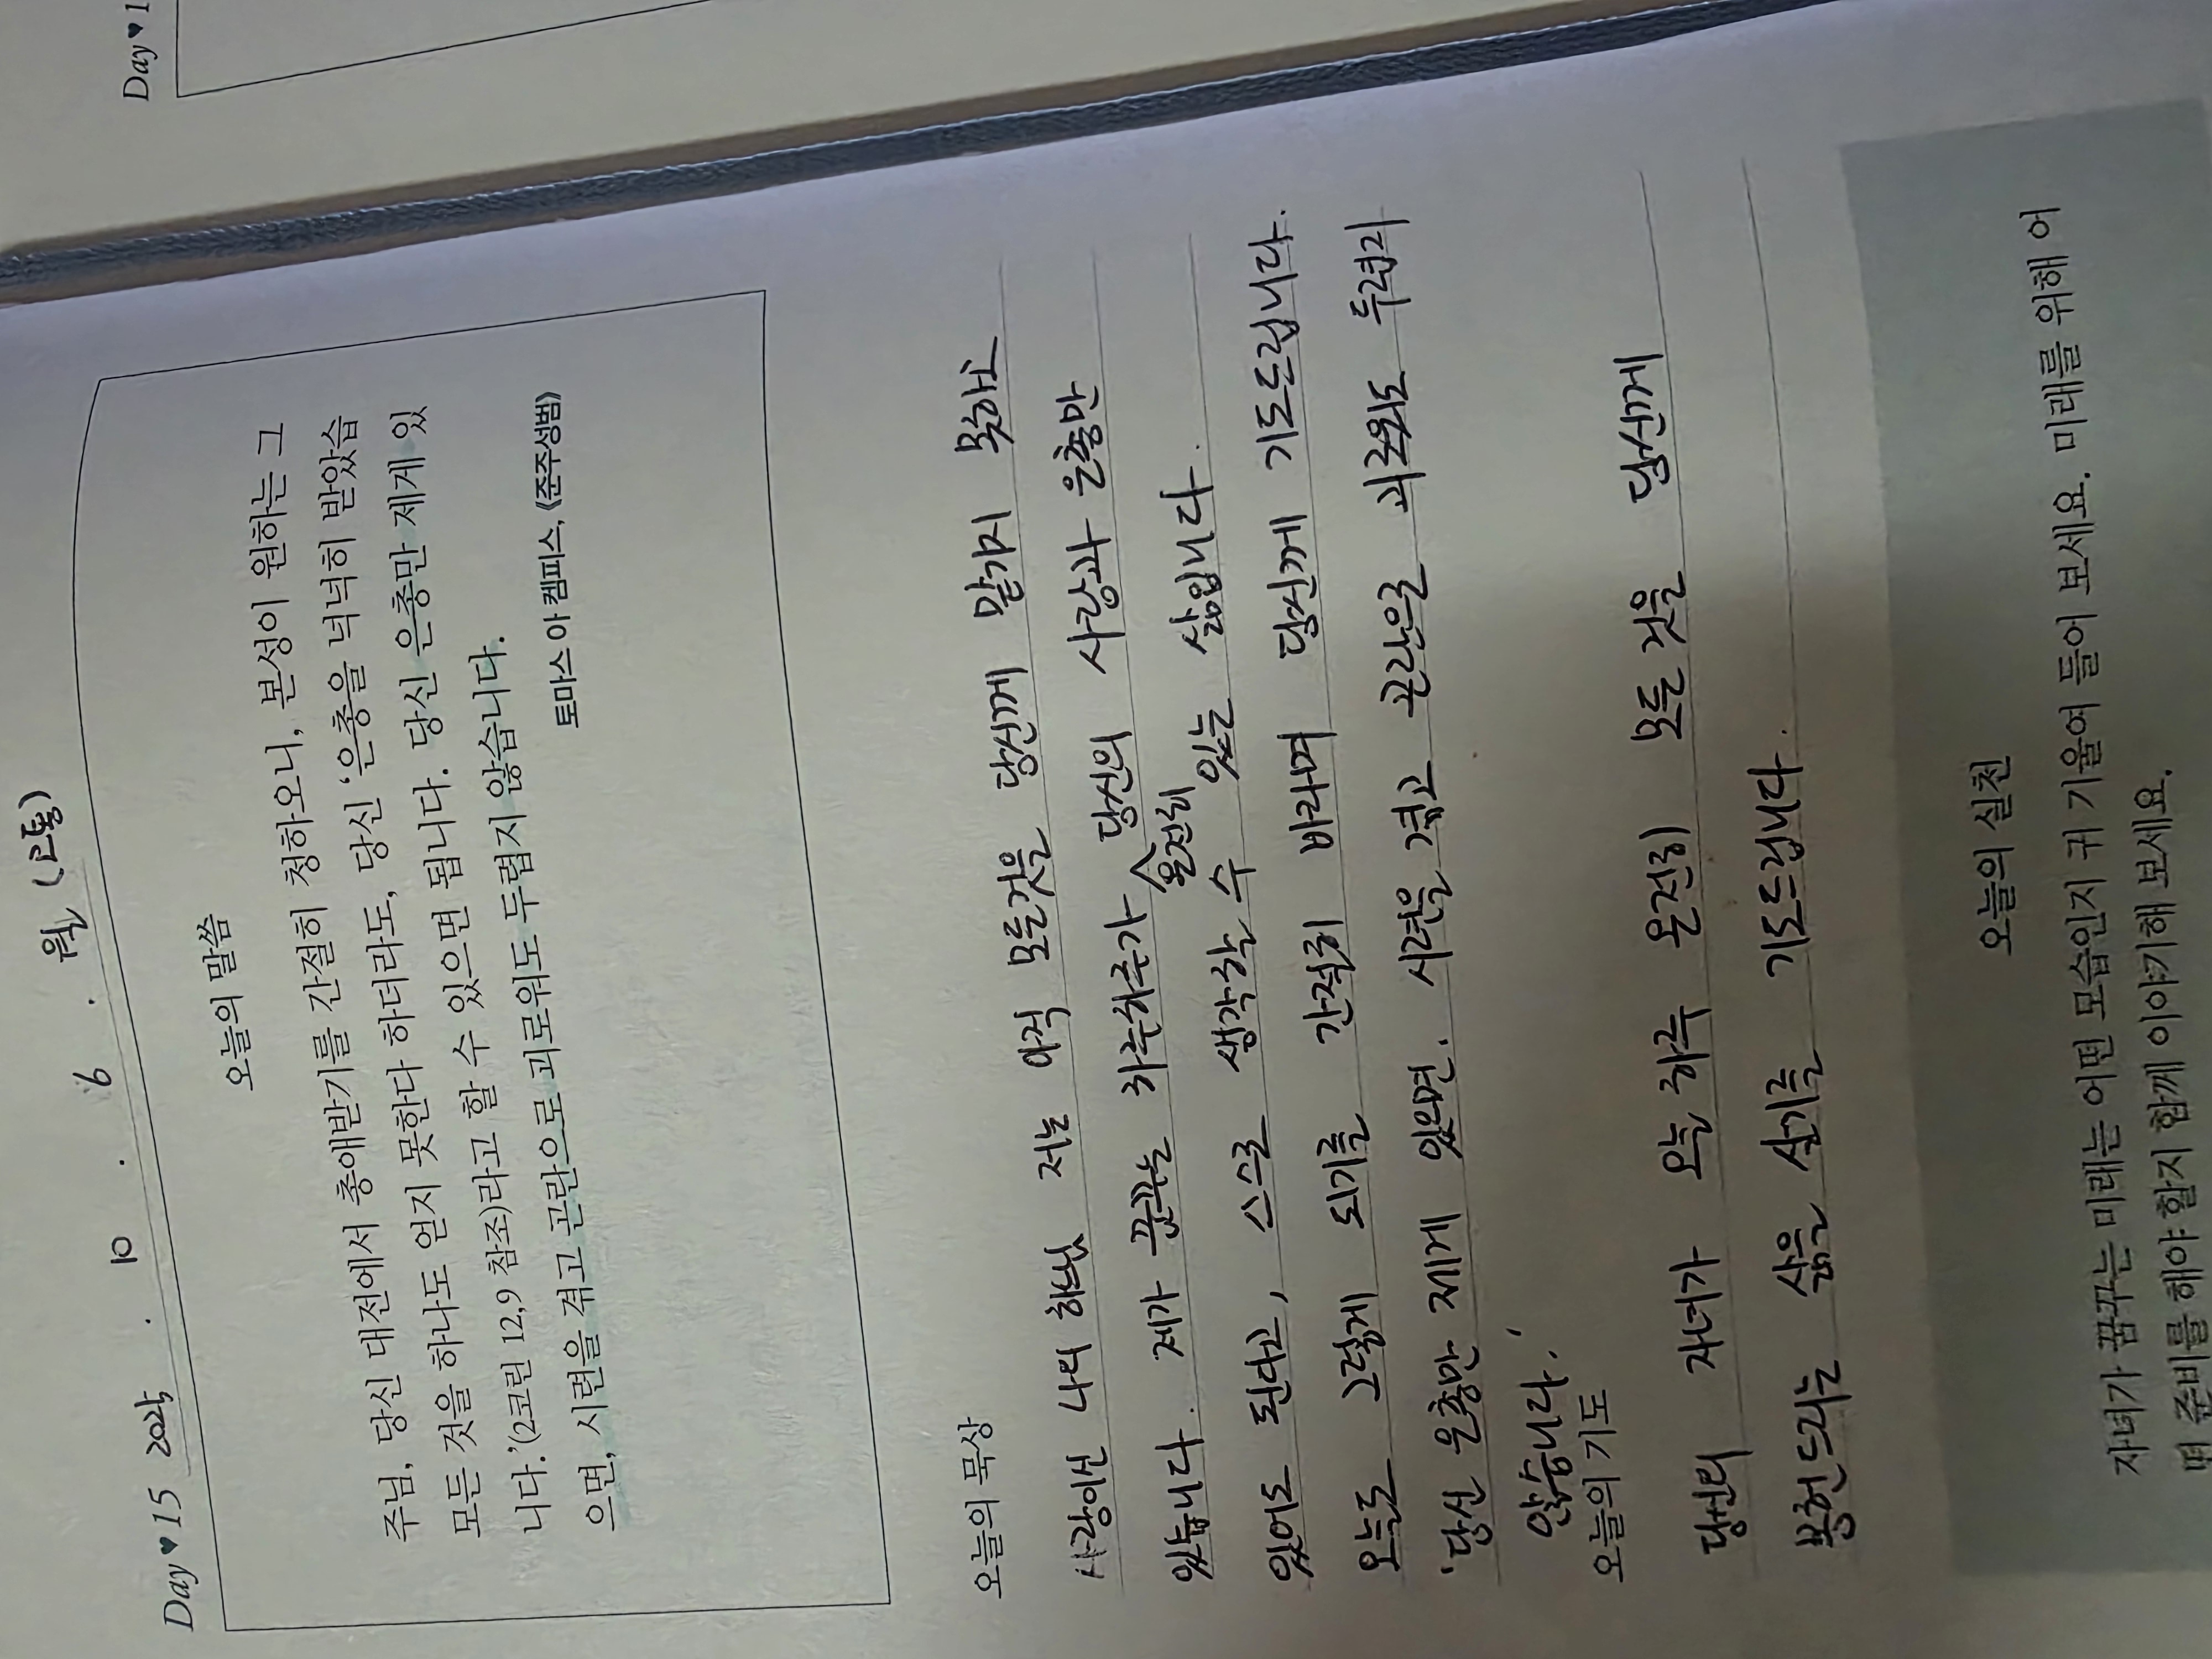 Day ♥ 1
Day ♥ 15 2025 . 10 . 6 . 월 (고통)
오늘의 말씀
주님, 당신 대전에서 총애받기를 간절히 청하오니, 본성이 원하는 그
모든 것을 하나도 얻지 못한다 하더라도, 당신 ‘은총을 넉넉히 받았습
니다.’(2코린 12,9 참조)라고 할 수 있으면 됩니다. 당신 은총만 제게 있
으면, 시련을 겪고 곤란으로 괴로워도 두렵지 않습니다.
토마스 아 켐피스, 《준주성범》
오늘의 묵상
사랑이신 나의 하느님 저는 아직 모든것을 당신께 맡기지 못하고
있습니다. 제가 꿈꾸는 하루하루가 당신의 사랑과 은총만
온전히
있어도 된다고, 스스로 생각할 수 있는 삶입니다.
오늘도 그렇게 되기를 간절히 바라며 당신께 기도드립니다.
'당신 은총만 제게 있으면, 시련을 겪고 곤란으로 괴로워도 두렵지
않습니다.'
오늘의 기도
당신의 자녀가 오늘 하루 온전히 모든 것을 당신께
봉헌드리는 삶을 살기를 기도드립니다.
오늘의 실천
자녀가 꿈꾸는 미래는 어떤 모습인지 귀 기울여 들어 보세요. 미래를 위해 어
떤 준비를 해야 할지 함께 이야기해 보세요.